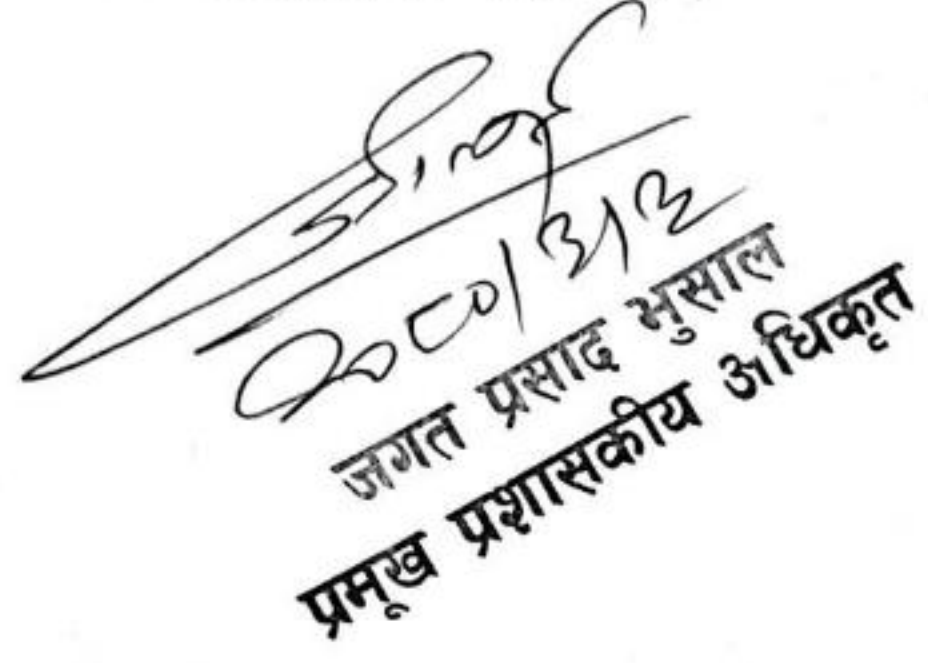 २०८०/३/३
जगत प्रसाद भुसाल
प्रमूख प्रशासकीय अधिकृत